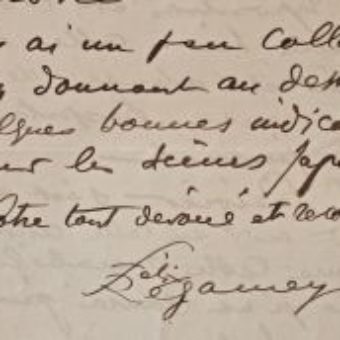 ai un peu colla
donnant au dess
elques bonnes indica
ur les scènes Japo
otre tout dévoué et reco
Félix Régamey